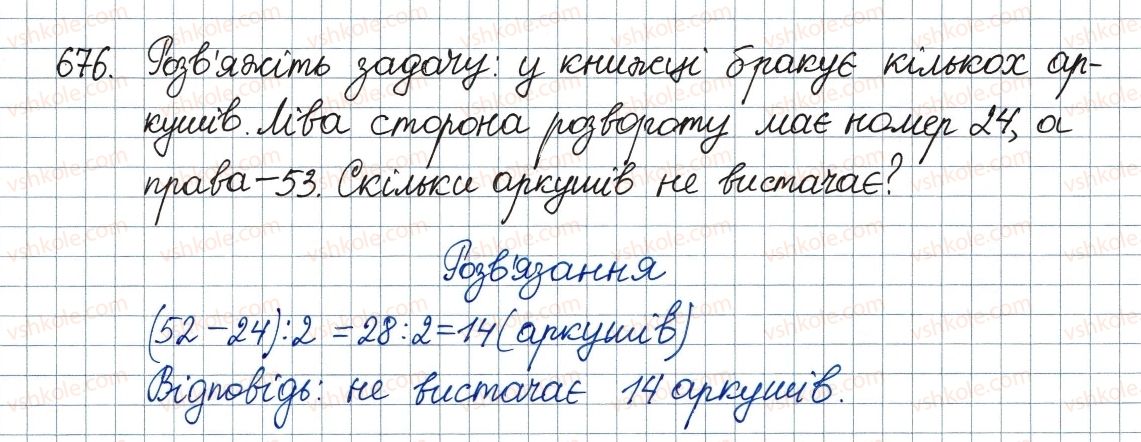 676. Розв'яжіть задачу: у книжці бракує кількох ар-
кушів. Ліва сторона розвороту має номер 24, а
права – 53. Скільки аркушів не вистачає?
Розв'язання
(52 – 24) : 2 = 28 : 2 = 14 (аркушів)
Відповідь: не вистачає 14 аркушів.